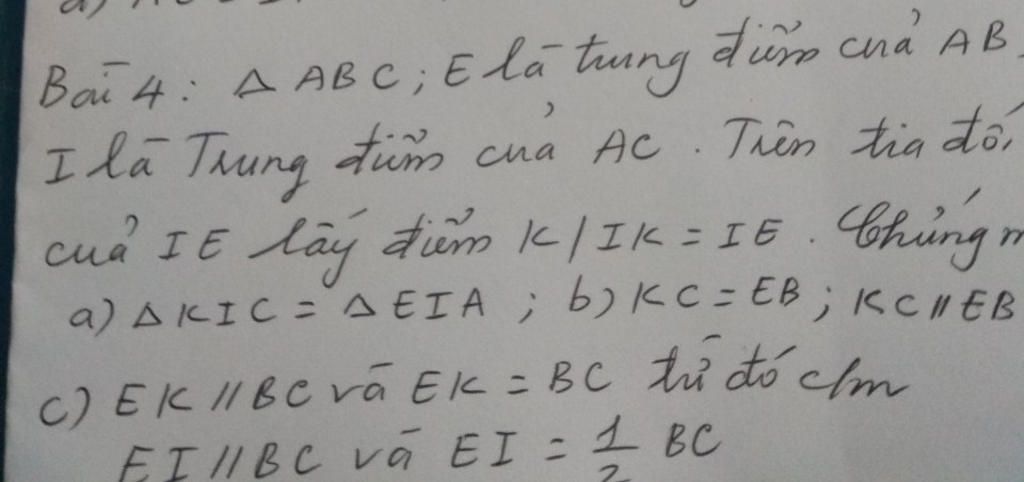 Bài 4: Δ ABC; E là trung điểm của AB.
I là Trung điểm của AC. Trên tia đối
của IE lấy điểm K / IK = IE. Chứng m
a) Δ KIC = Δ EIA ; b) KC = EB ; KC // EB
c) EK // BC và EK = BC từ đó c/m
EI // BC và EI = 1/2 BC